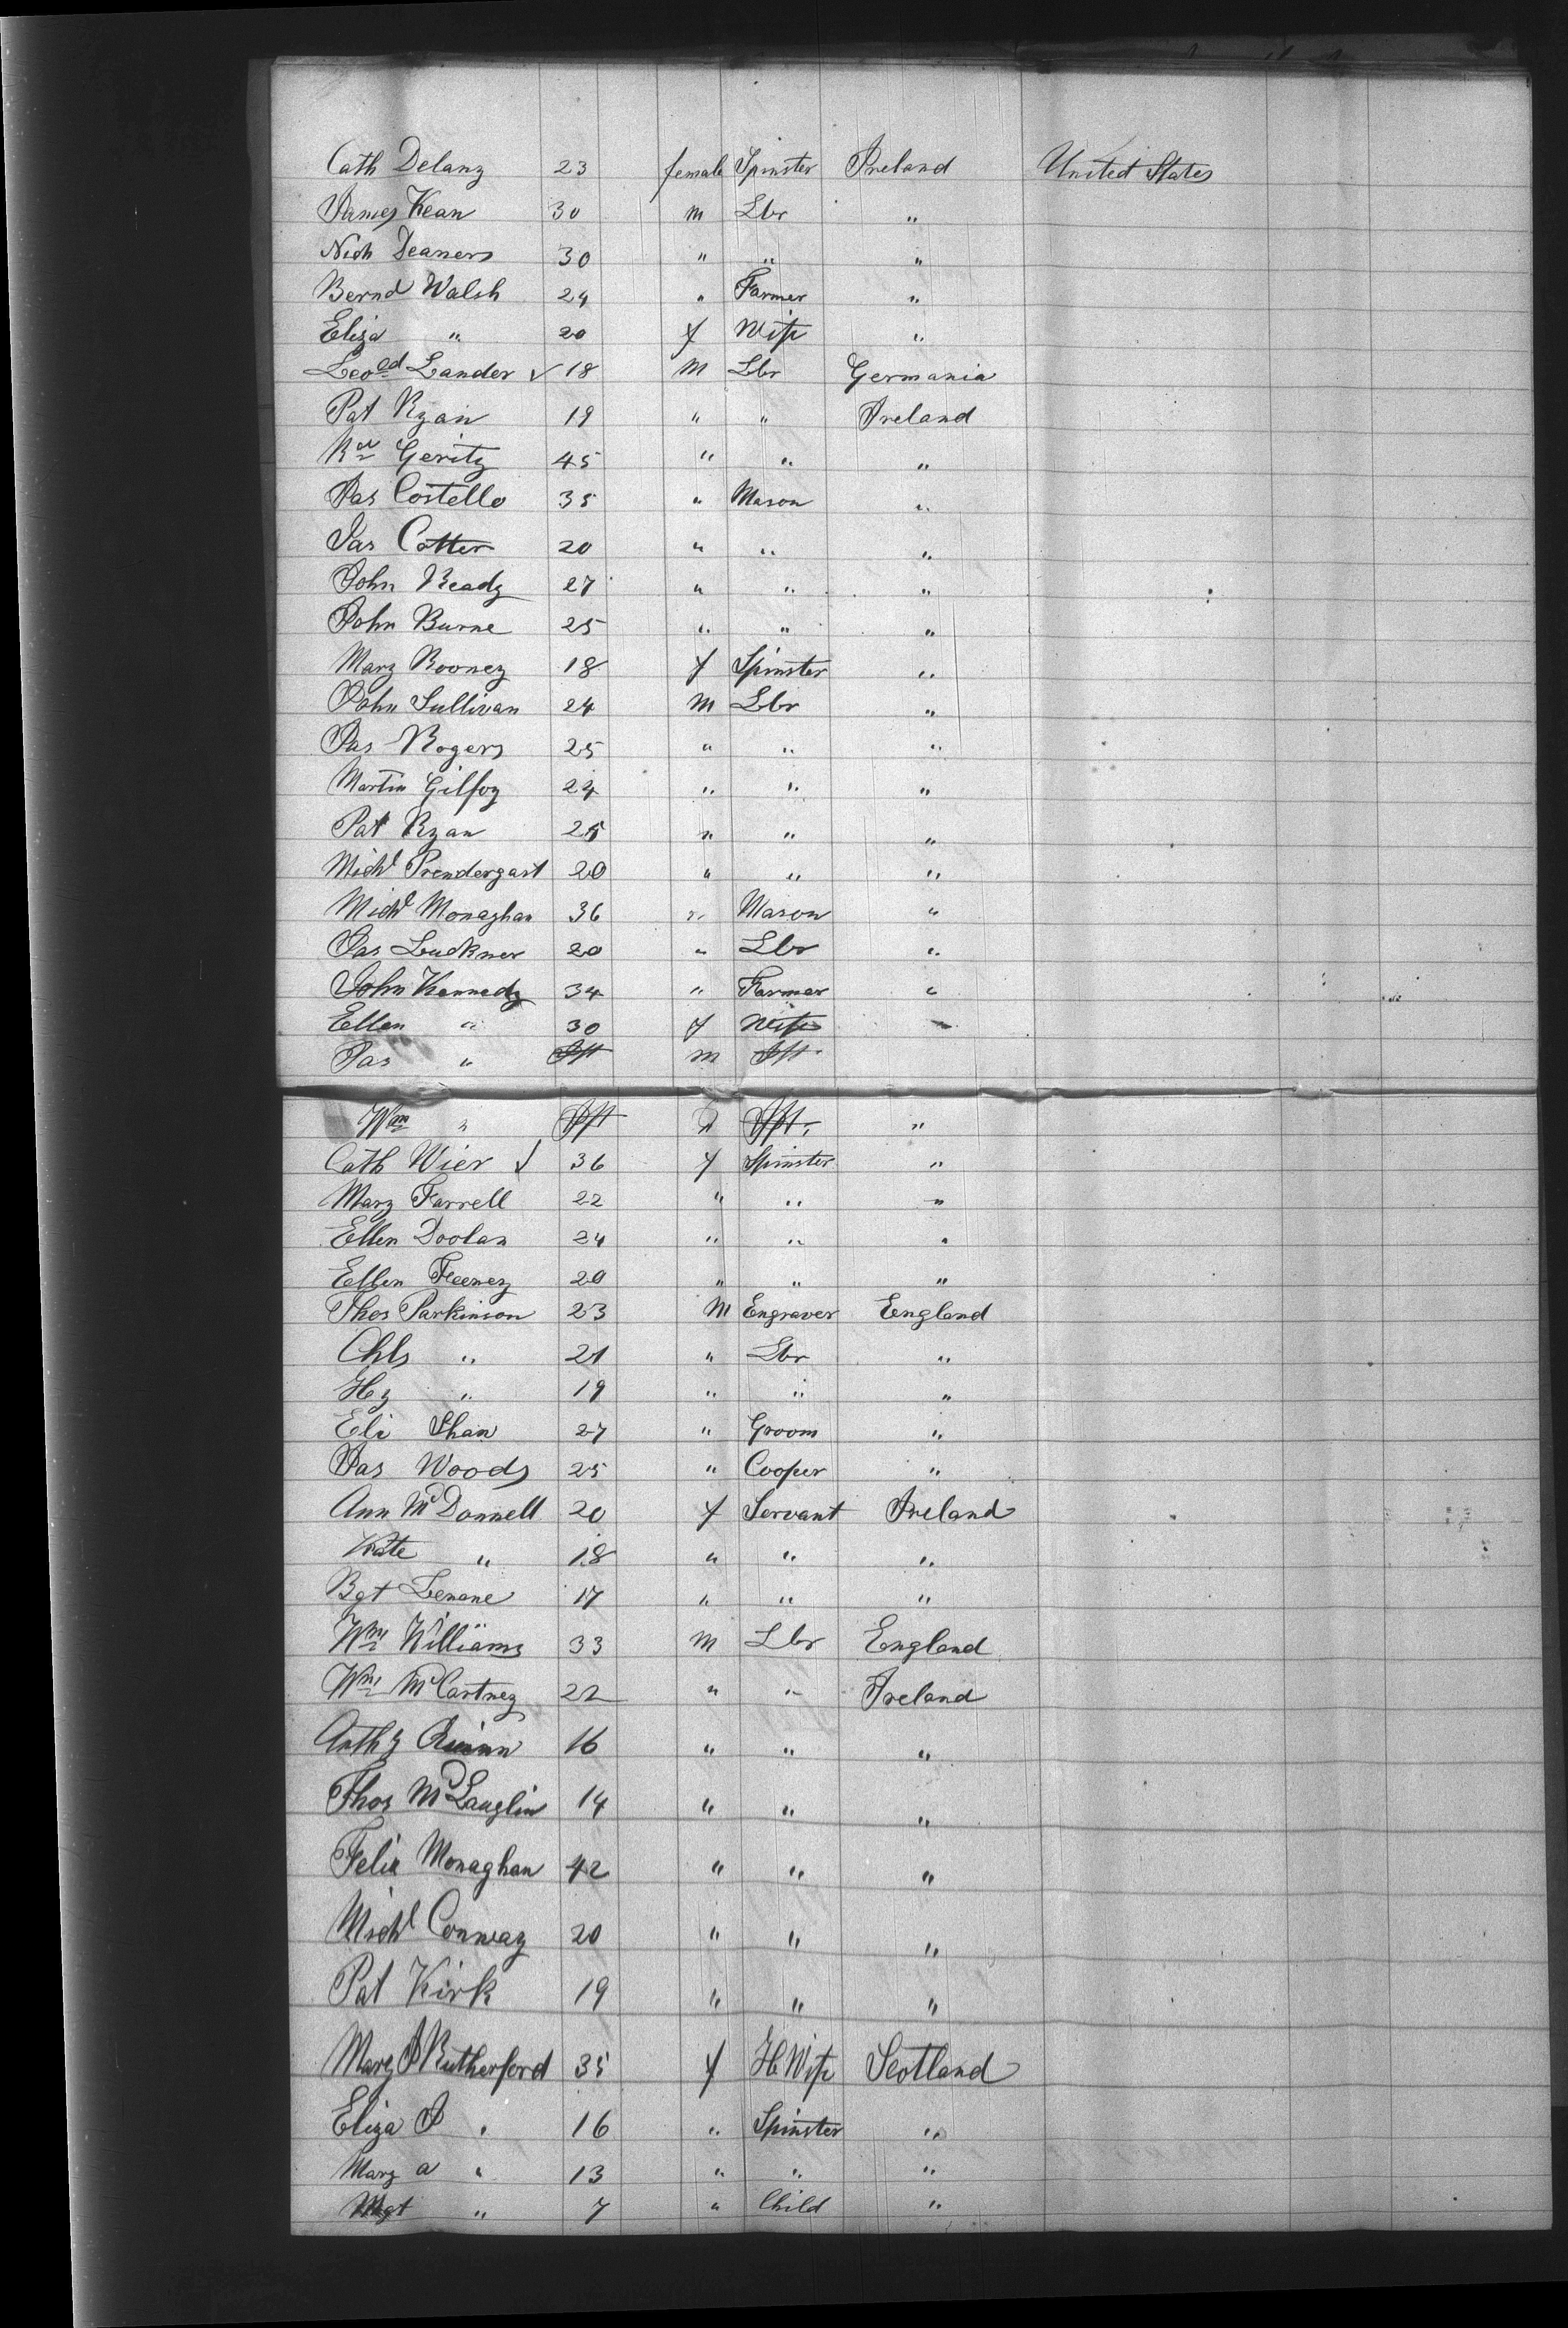 Cath Delany 23 female Spinster Ireland United States
James Kean 30 m Lbr "
Nich Deaners 30 " " "
Bernd Walsh 24 " Farmer "
Eliza " 20 f Wife "
Leo^ld Lander ✓ 18 M Lbr Germania
Pat Ryan 19 " " Ireland
R^d Gerity 45 " " "
Jas Costello 35 " Mason "
Jas Cotter 20 " " "
John Ready 27 " " "
John Burne 25 " " "
Mary Rooney 18 f Spinster "
John Sullivan 24 M Lbr "
Jas Rogers 25 " " "
Martin Gilfoy 24 " " "
Pat Ryan 25 " " "
Mich^l Prendergast 20 " " "
Mich^l Monaghan 36 " Mason "
Jas Luckner 20 " Lbr "
John Kennedy 34 " Farmer "
Ellen " 30 f Wife "
Jas " Ift m Ift
W^m " Ift " Ift "
Cath Wier ✓ 36 f Spinster "
Mary Farrell 22 " " "
Ellen Doolan 24 " " "
Ellen Feeney 20 " " "
Thos Parkinson 23 M Engraver England
Chls " 21 " Lbr "
Hy " 19 " " "
Eli Shan 27 " Groom "
Jas Woods 25 " Cooper "
Ann McDonnell 20 f Servant Ireland
Kate " 18 " " "
Bgt Lenane 17 " " "
W^m Williams 33 M Lbr England
W^m McCartney 22 " " Ireland
Anthy Quinn 16 " " "
Thos McLauglin 14 " " "
Felix Monaghan 42 " " "
Mich^l Conway 20 " " "
Pat Kirk 19 " " "
Mary J Rutherford 35 f H Wife Scotland
Eliza J " 16 " Spinster "
Mary A " 13 " " "
Mgt " 7 " Child "